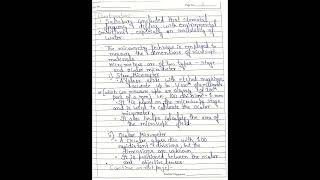 Salisbury concluded that stomatal
frequency varies with environmental
conditions especially on availability of
water.
The micrometry technique is employed to
measure the dimensions of microscopic
materials
Micrometers are of two types - stage
and ocular micrometer
1) Stage Micrometer
- A glass slide with etched
accurate up to 1/100th
of a mm) in 100 divisions = 1 mm
- It is placed on the microscope stage
and is used to calibrate the ocular
micrometer.
- It also helps calculate the area of
the microscopic field.
2) Ocular Micrometer
- A circular glass disc with 100
equidistant divisions, but the
dimensions are unknown
- It is positioned between the ocular
and objective lenses